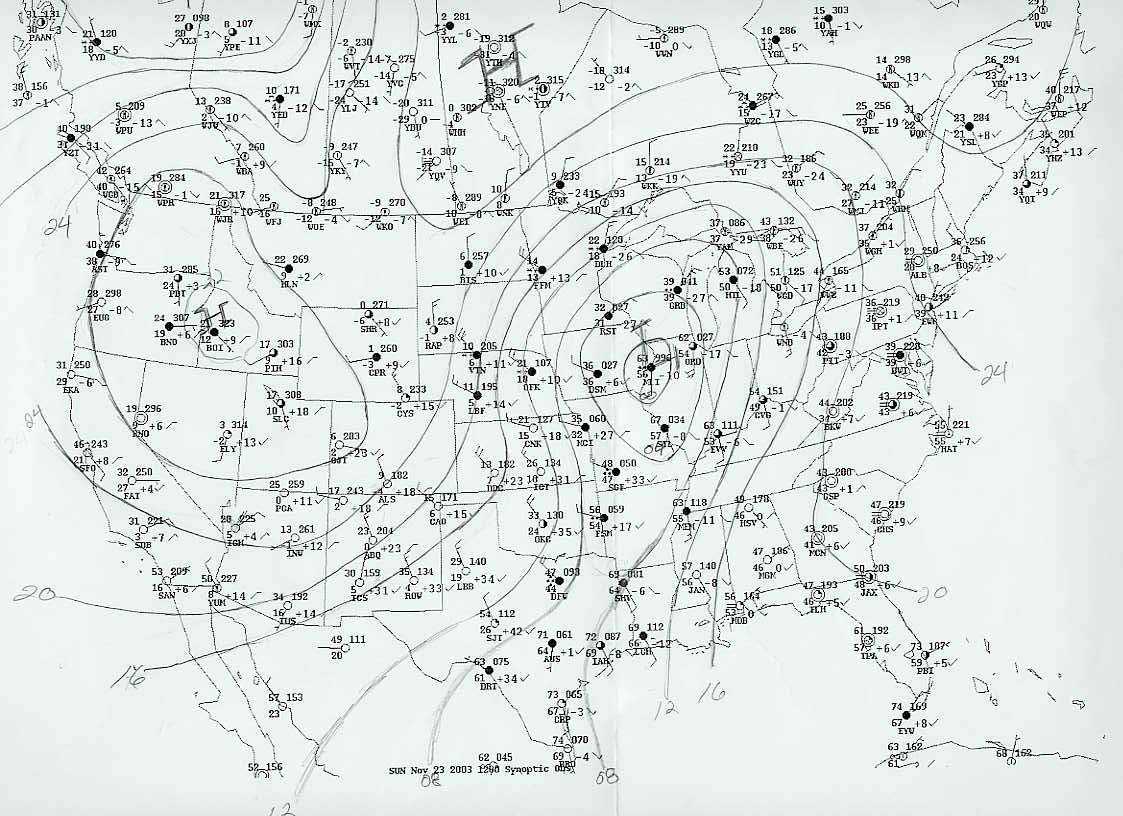 31 131
30 -3
PAAN
21 120
18 -5
YYD
27 098
-3
YXJ
8 107
5 -11
YPE
WMX
2 281
-3
YYL
-19 312
-4
YTH
-5 289
-10 0
WWN
15 303
10 -1
YAH
18 286
13 -5
YGL
20
WQW
H
-2 230
-14
YVT
-7 275
-14 -5
YVC
-17 251
-24 -14
YLJ
320
-6
YNE
2 315
-1 -7
YIV
-18 314
-12 -2
14 298
-13
WKD
26 294
23 +13
YBP
38 156
37 -1
5 209
-3 -13
WPU
13 238
2 -10
WJW
10 171
4 -12
YED
-20 311
-29 0
YDU
0 302
-4
WHH
24 267
15 -17
WZC
25 256
23 -19
WEE
31
22
WOM
23 284
21 +8
YSL
40 217
-12
40 190
31 -34
YZT
7 260
-1 +9
WBA
-9 247
-15 -7
YKY
-14 307
-21 -9
YQV
22 210
19 -23
YYU
32 186
23 -24
WUY
35 201
34 +13
YHZ
42 264
40 -15
19 284
15 -1
WPR
21 317
16 +10
WJR
25
16
WFJ
-8 248
-12 -4
WOE
-9 270
-12 -7
WKO
-8 289
-10 -8
WEI
10
8
WNK
9 233
-24
YQK
15 193
10 -14
15 214
13 -19
WKK
32 214
27 -11
32
25
37 211
34 +9
YQI
24
40 276
38 -9
AST
31 285
24 +3
PDT
22 269
9 +2
HLN
6 257
1 +10
BIS
14
13 +13
FFM
22 120
18 -26
DLH
37 086
37 -29
YAM
43 132
38 -26
WBE
37 204
35 +1
WGH
29 250
28 +8
ALB
36 256
24 -12
BOS
28 298
27 -8
EUG
24 307
19 +6
BNO
H
21 323
12 -9
BOI
0 271
-6 +8
SHR
4 253
-1 +8
RAP
39 041
39 -27
GRB
53 072
50 -18
HTL
51 125
50 -17
44 165
-11
36 219
36 +1
IPT
40 242
39 +11
EWR
17 303
9 +16
PIH
1 260
-3 +9
CPR
10 205
6 +11
VTN
21 107
18 +10
OFK
32 027
31 -27
RST
36 027
36 +6
DSM
63 996
56 -10
MLI
62 027
54 -17
ORD
-4
43 180
42 -3
PIT
39 228
39 -6
24
31 250
29 -6
EKA
17 308
10 +18
SLC
8 233
-2 +15
CYS
11 195
5 +14
LBF
54 151
49 -1
CVG
44 202
34 +7
BKW
43 219
43 +6
24
19 296
9 +6
RNO
3 314
-2 +13
ELY
6 283
2 +23
GJT
21 127
15 +18
CNK
35 060
32 +27
MCI
67 034
57 -8
STL
04
63 111
53 -6
EVV
55 221
55 +7
HAT
46 243
21 +8
SFO
32 250
27 +4
FAT
25 259
0 +11
PGA
17 243
2 +18
9 182
-4 +18
ALS
15 171
6 +15
CAO
13 182
7 +23
DDC
26 134
18 +31
ICT
48 050
47 +33
SGF
43 200
43 +1
GSP
31 221
3 +7
SDB
28 225
5 +4
IGM
13 261
1 +12
INW
23 204
0 +23
ABQ
33 130
24 +35
OKC
56 059
54 +17
FSM
63 118
55 -11
MEM
49 178
46 0
HSV
47 219
46 +9
CHS
43 205
41 +6
MCN
20
53 209
16 +6
SAN
50 227
8 +14
YUM
34 192
16 +14
TUS
30 159
5 +31
TCS
35 134
4 +33
ROW
29 140
19 +34
LBB
47 093
44
DFW
69 081
64 -6
SHV
57 140
56 -8
JAN
47 186
46 0
MGM
56 164
53 0
MOB
47 193
46 +5
TLH
50 203
48 +6
JAX
20
49 111
20
54 112
26 +42
SJT
71 061
64 +1
AUS
72 087
69 -8
IAH
69 112
66 -12
LCH
61 192
57 +6
TPA
73 187
59 +5
PBI
16
63 075
61 +34
DRT
73 065
67 -3
CRP
12
16
57 153
23
74 169
67 +8
EYW
74 070
69 -4
BRO
63 162
61
68 162
52 156
62 045
SUN Nov 23 2003 1200 Synoptic Obs
08
08
12